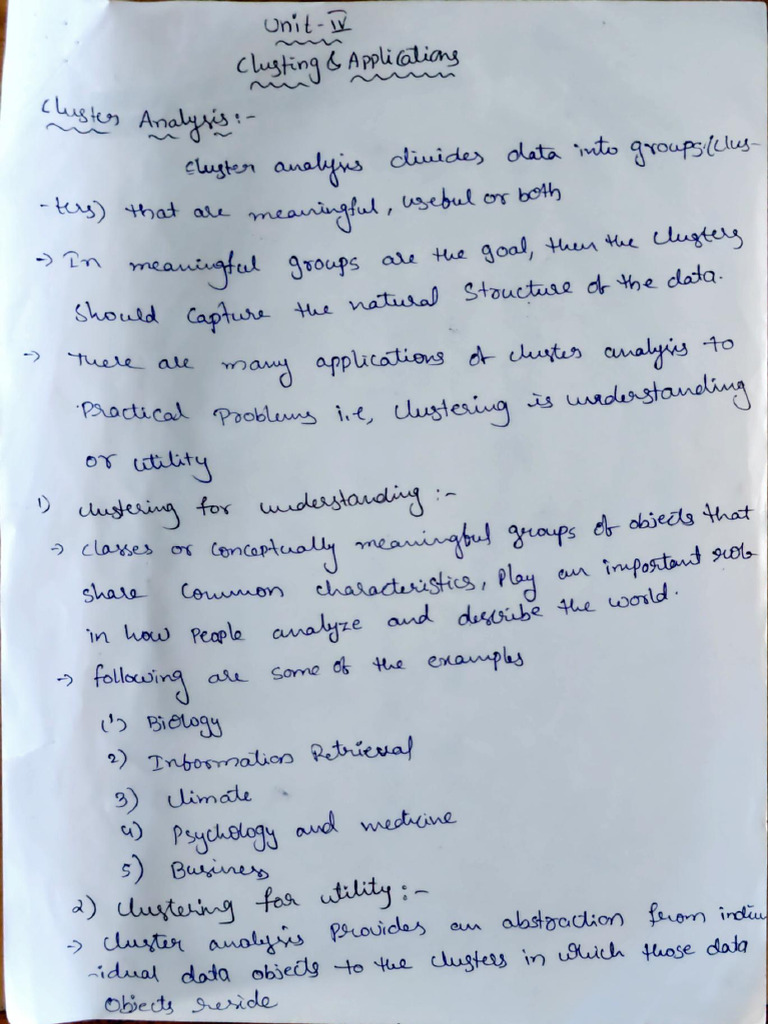 Unit-IV
Clusting & Applications
Cluster Analysis:-
Cluster analysis divides data into groups (clus-
-ters) that are meaningful, useful or both
→ In meaningful groups are the goal, then the clusters
should capture the natural structure of the data.
→ There are many applications of cluster analysis to
practical problems i.e, clustering is understanding
or utility
1) clustering for understanding :-
→ classes or conceptually meaningful groups of objects that
share common characteristics, play an important role
in how people analyze and describe the world.
→ following are some of the examples
(1) Biology
2) Information Retrieval
3) climate
4) Psychology and medicine
5) Business
2) clustering for utility :-
→ cluster analysis provides an abstraction from indiv
-idual data objects to the clusters in which those data
objects reside